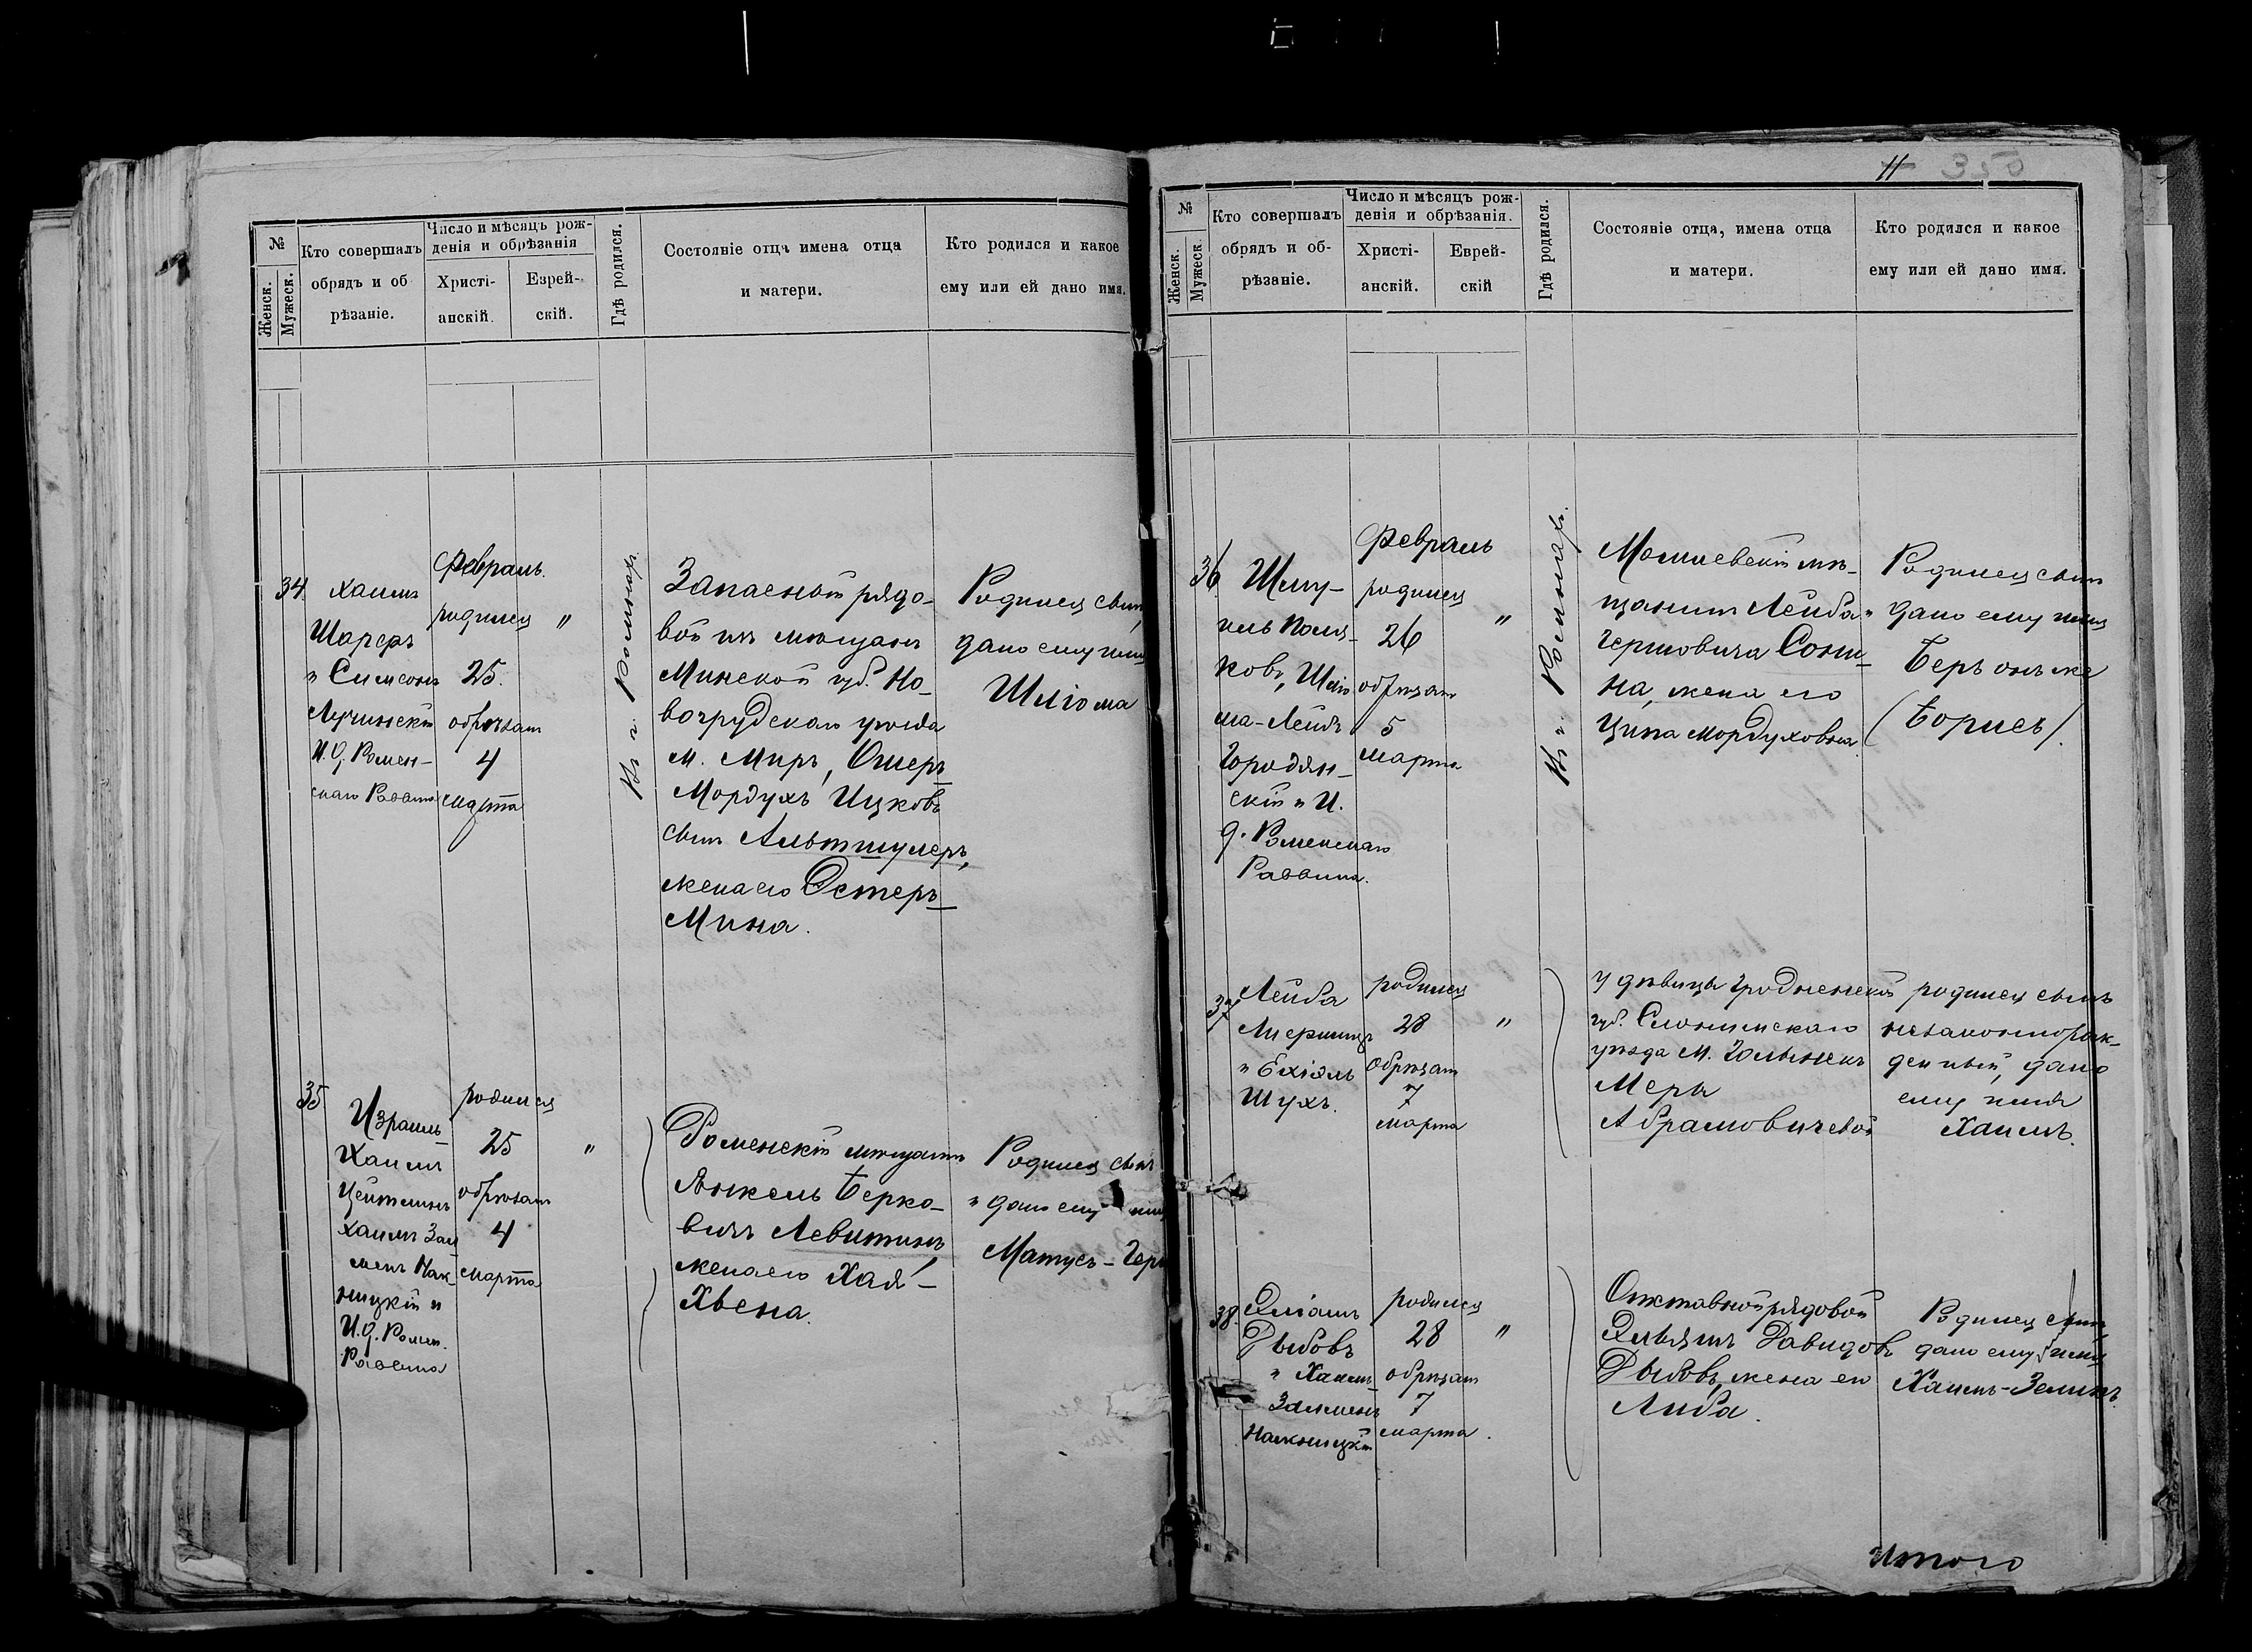 №
Женск.
Мужеск.
Кто совершалъ
обрядъ и об
рѣзаніе.
Число и мѣсяцъ рож-
денія и обрѣзанія
Христі-
анскій.
Еврей-
скій.
Гдѣ родился.
Состояніе отца имена отца
и матери.
Кто родился и какое
ему или ей дано имя.
34
Хаимъ
Шарфъ
и Симсонъ
Лучинскій
И. Д. Ромен-
скаго Раввина
Февраль.
родился
25.
обрѣзанъ
4
марта
"
Въ г. Ромнахъ
Запасный рядо-
вой изъ мѣщанъ
Минской губ. Но-
вогрудскаго уѣзда
м. Миръ, Ошеръ
Мордухъ Ицковъ
сынъ Альтшулеръ,
жена его Эстеръ
Мина.
Родился сынъ,
дано ему имя
Шліома
35
Израиль
Хаимъ
Цейтлинъ
Хаимъ Зал
менъ
ницкій и
И. Д. Ромен.
Раввина
родился
25
обрѣзанъ
4
марта
"
Роменскій мѣщанинъ
Янкель Берко-
вичъ Левитинъ,
жена его Хая-
Хвена.
Родился сынъ
и дано ему имя
Матусъ-
11
№
Женск.
Мужеск.
Кто совершалъ
обрядъ и об-
рѣзаніе.
Число и мѣсяцъ рож-
денія и обрѣзанія.
Христі-
анскій.
Еврей-
скій
Гдѣ родился.
Состояніе отца, имена отца
и матери.
Кто родился и какое
ему или ей дано имя.
36
Шму-
иль Поля-
ковъ, Шліо
ма-Лейбъ
Городян-
скій и И.
д. Роменскаго
Раввина.
Февраль
родился
26
обрѣзанъ
5
марта
"
Въ г. Ромнахъ.
Могилевскій мѣ-
щанинъ Лейба
Гершовичъ
на, жена его
Ципа Мордуховна
Родился сынъ
дано ему имя
Беръ онъ же
(Борисъ).
37
Лейба
и Ехіэль
Шухъ.
родился
28
обрѣзанъ
7
марта
"
у дѣвицы Гродненской
губ. Слонимскаго
уѣзда м.
Меры
Абрамовичевой
родился сынъ
незаконнорож-
денный, дано
ему имя
Хаимъ.
38.
Эліашъ
Рыбовъ
и Хаимъ
Залменъ
родился
28
обрѣзанъ
7
марта.
"
Отставной рядовой
Эльяшъ Давидовъ
Рыбовъ, жена его
Либа.
Родился сынъ,
дано ему имя
Хаимъ-Зелигъ.
Итого